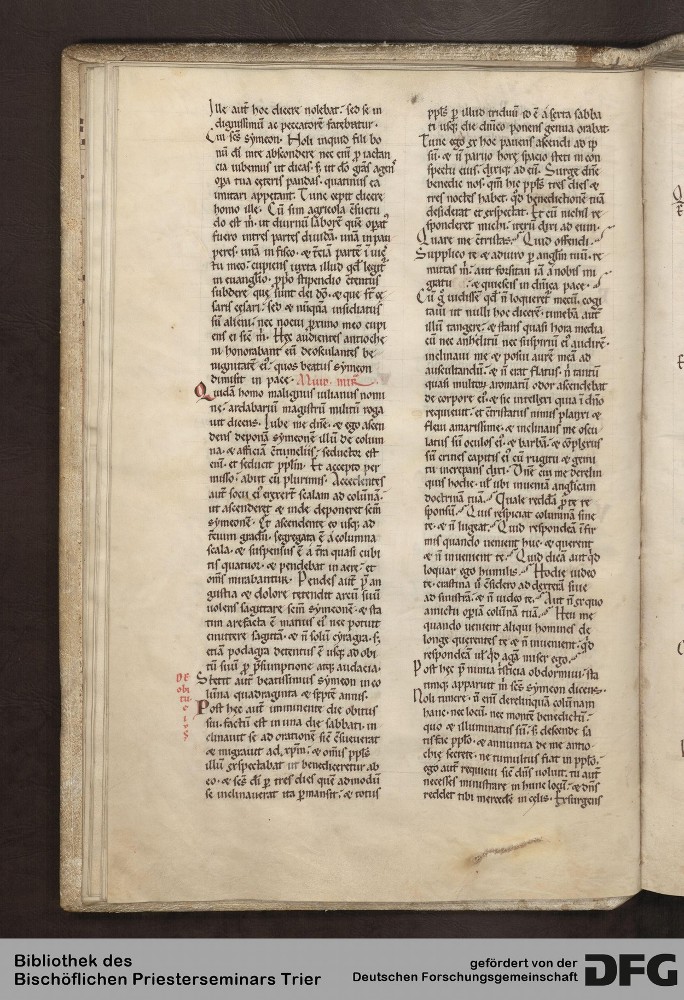 Ille aut̄ hoc dicere nolebat. sed se in
dignissimū ac peccatorē fatebatur.
Cui sc̄s symeon. Noli inquid fili bo
nū dī inte abscondere nec enī ꝑ iactan
cia iubemus ut dicas. s; ut dō grās agen
opa tua ceteris pandas. quatinus ea
imitari appetant. Tunc cepit dicere
homo ille. Cū sim agricola c̄suetu
do est m̄. ut diurnū laborē que opat
fuero intres partes diuidā. unā in pau
peres. unā in fisco. & t̄ciā partē
meo. cupiens iuxta illud qd̄ legit
in euanglio. ꝓpo stipendio c̄tentus
subdere que sunt dei dō. & que st̄
saris cesari. sed & nūqua insidiatus
sū alieni. nec nocui ꝓximo meo cupi
ens ei sic m̄. Hec audientes antioche
ni honorabant eū deosculantes be
nignitatē ei. quos beatus symeon
dimisit in pace.
Quidā homo malignus iulianus nomi
ne. ardabariū magistrū militū roga
uit dicens. Iube me dn̄e. & ego ascen
dens deponā symeonē illū de colum
na. & afficiā c̄tumeliis. seductor est
eni. et seducit pplm̄. Et accepto per
misso. abiit cū plurimis. Accedentes
aut̄ socii ei erexert̄ scalam ad colūnā.
ut ascenderet & inde deponeret sc̄m
symeonē. Et ascendente eo usq; ad
t̄cium gradū. segregata ē a columna
scala. & suspensus ē a t̄ra quasi cubi
tis quatuor. & pendebat in aere. et
oms̄ mirabantur. Pendes aut̄ p̄ an
gustia & dolore tetendit arcū suū
uolens sagittare sc̄m symeonē. & sta
tim arefacta ē manus ei. nec potuit
emittere sagittā. & n̄ solū cyragia. s;
etiā podagra detentus ē usq; ad obi
tū suū ꝓ p̄sumptione atq; audacia.
Stetit aut̄ beatissimus symeon in co
lūna quadraginta & septē annis.
De
obi
tu
e
i
Post hec aut̄ imminente die obitus
sui. factū est in una die sabbati. in
clinauit se ad orationē sic c̄sueuerat
& migrauit ad xp̄m. & omis ppls̄
illū expectabat ut benediceretur ab
eo. & sc̄s dī ꝑ tres dies quē admodū
se inclinauerat ita ꝑmansit. & totus
ppls̄ ꝑ illud triduū id ē a sexta sabba
ti usq; die dn̄ico ponens genua orabat.
Tunc ego ex hoc pauens ascendi ad ip
sū. & ū paruo hore spacio steti in con
spectu eius. dixiq; ad eū. Surge dn̄e
benedic nos. qm̄ hic ppls̄ tres dies &
tres noctes habet. qd̄ benedictionē tuā
desiderat et expectat. Et cū nichil re
sponderet michi. iterū dixi ad eum.
Quare me c̄tristas. Quid offendi.
Supplico te & adiuro ꝑ anglm̄ tuū. re
mittas m̄. aut forsitan iā a nobis mi
gratu & quiescis in dn̄ica pace.
Cū g uidisse qd̄ n̄ loqueret mecū. cogi
taui ut nulli hoc dicerē. timebā aut̄
illū tangere. & stans quasi hora media
cū nec anhelitū nec suspiriū ei audirē.
inclinaui me & posui aurē meā ad
auscultandū. & n̄ erat flatus. n̄ tantū
quasi multoꝝ aromatū odor ascendebat
de corpore ei. & sic intellexi quia ī dn̄o
requieuit. et c̄tristatus nimis planxi &
fleui amarissime. & inclinans me oscu
latus sū oculos ei. & barbā. & cōplexus
sū crines capitis ei cū rugitu & gemi
tu increpans dixi. Dn̄e cui me derelin
quis hodie. ul ubi inueniā anglicam
doctrinā tuā. Quale reddā ꝑ te re
sponsū. Quis respiciat columnā sine
te. & n̄ lugeat. Quid respondeā īfir
mis quando uenient huc. & querent
& n̄ inuenient te. Quid dicā aut qd̄
loquar ego humilis. Hodie uideo
te. crastina si c̄sidero ad dexterā siue
ad sinistrā. & n̄ uideo te. Aut n̄ ex quo
amictu opiā colūnā tuā. Heu me
quando uenient aliqui homines de
longe querentes te & n̄ inuenient. qd̄
respondeā ul qd̄ agā miser ego.
Post hec p̄ nimia t̄sticia obdormiui. sta
timq; apparuit m̄ sc̄s symeon dicens.
Noli timere. n̄ enī derelinquā colūnam
hanc. nec locū. nec montē benedictū.
quo & illuminatus sū. s; descende sa
tisfac pplo. & annuntia de me antio
chie secrete. ne tumultus fiat in pplo.
ego aut̄ requieui sic dn̄s uoluit. tu aut̄
necesses ministrare in hunc locū. & dn̄s
reddet tibi mercedē in celis. Exsurgens
Bibliothek des
Bischöflichen Priesterseminars Trier
gefördert von der
Deutschen Forschungsgemeinschaft
DFG